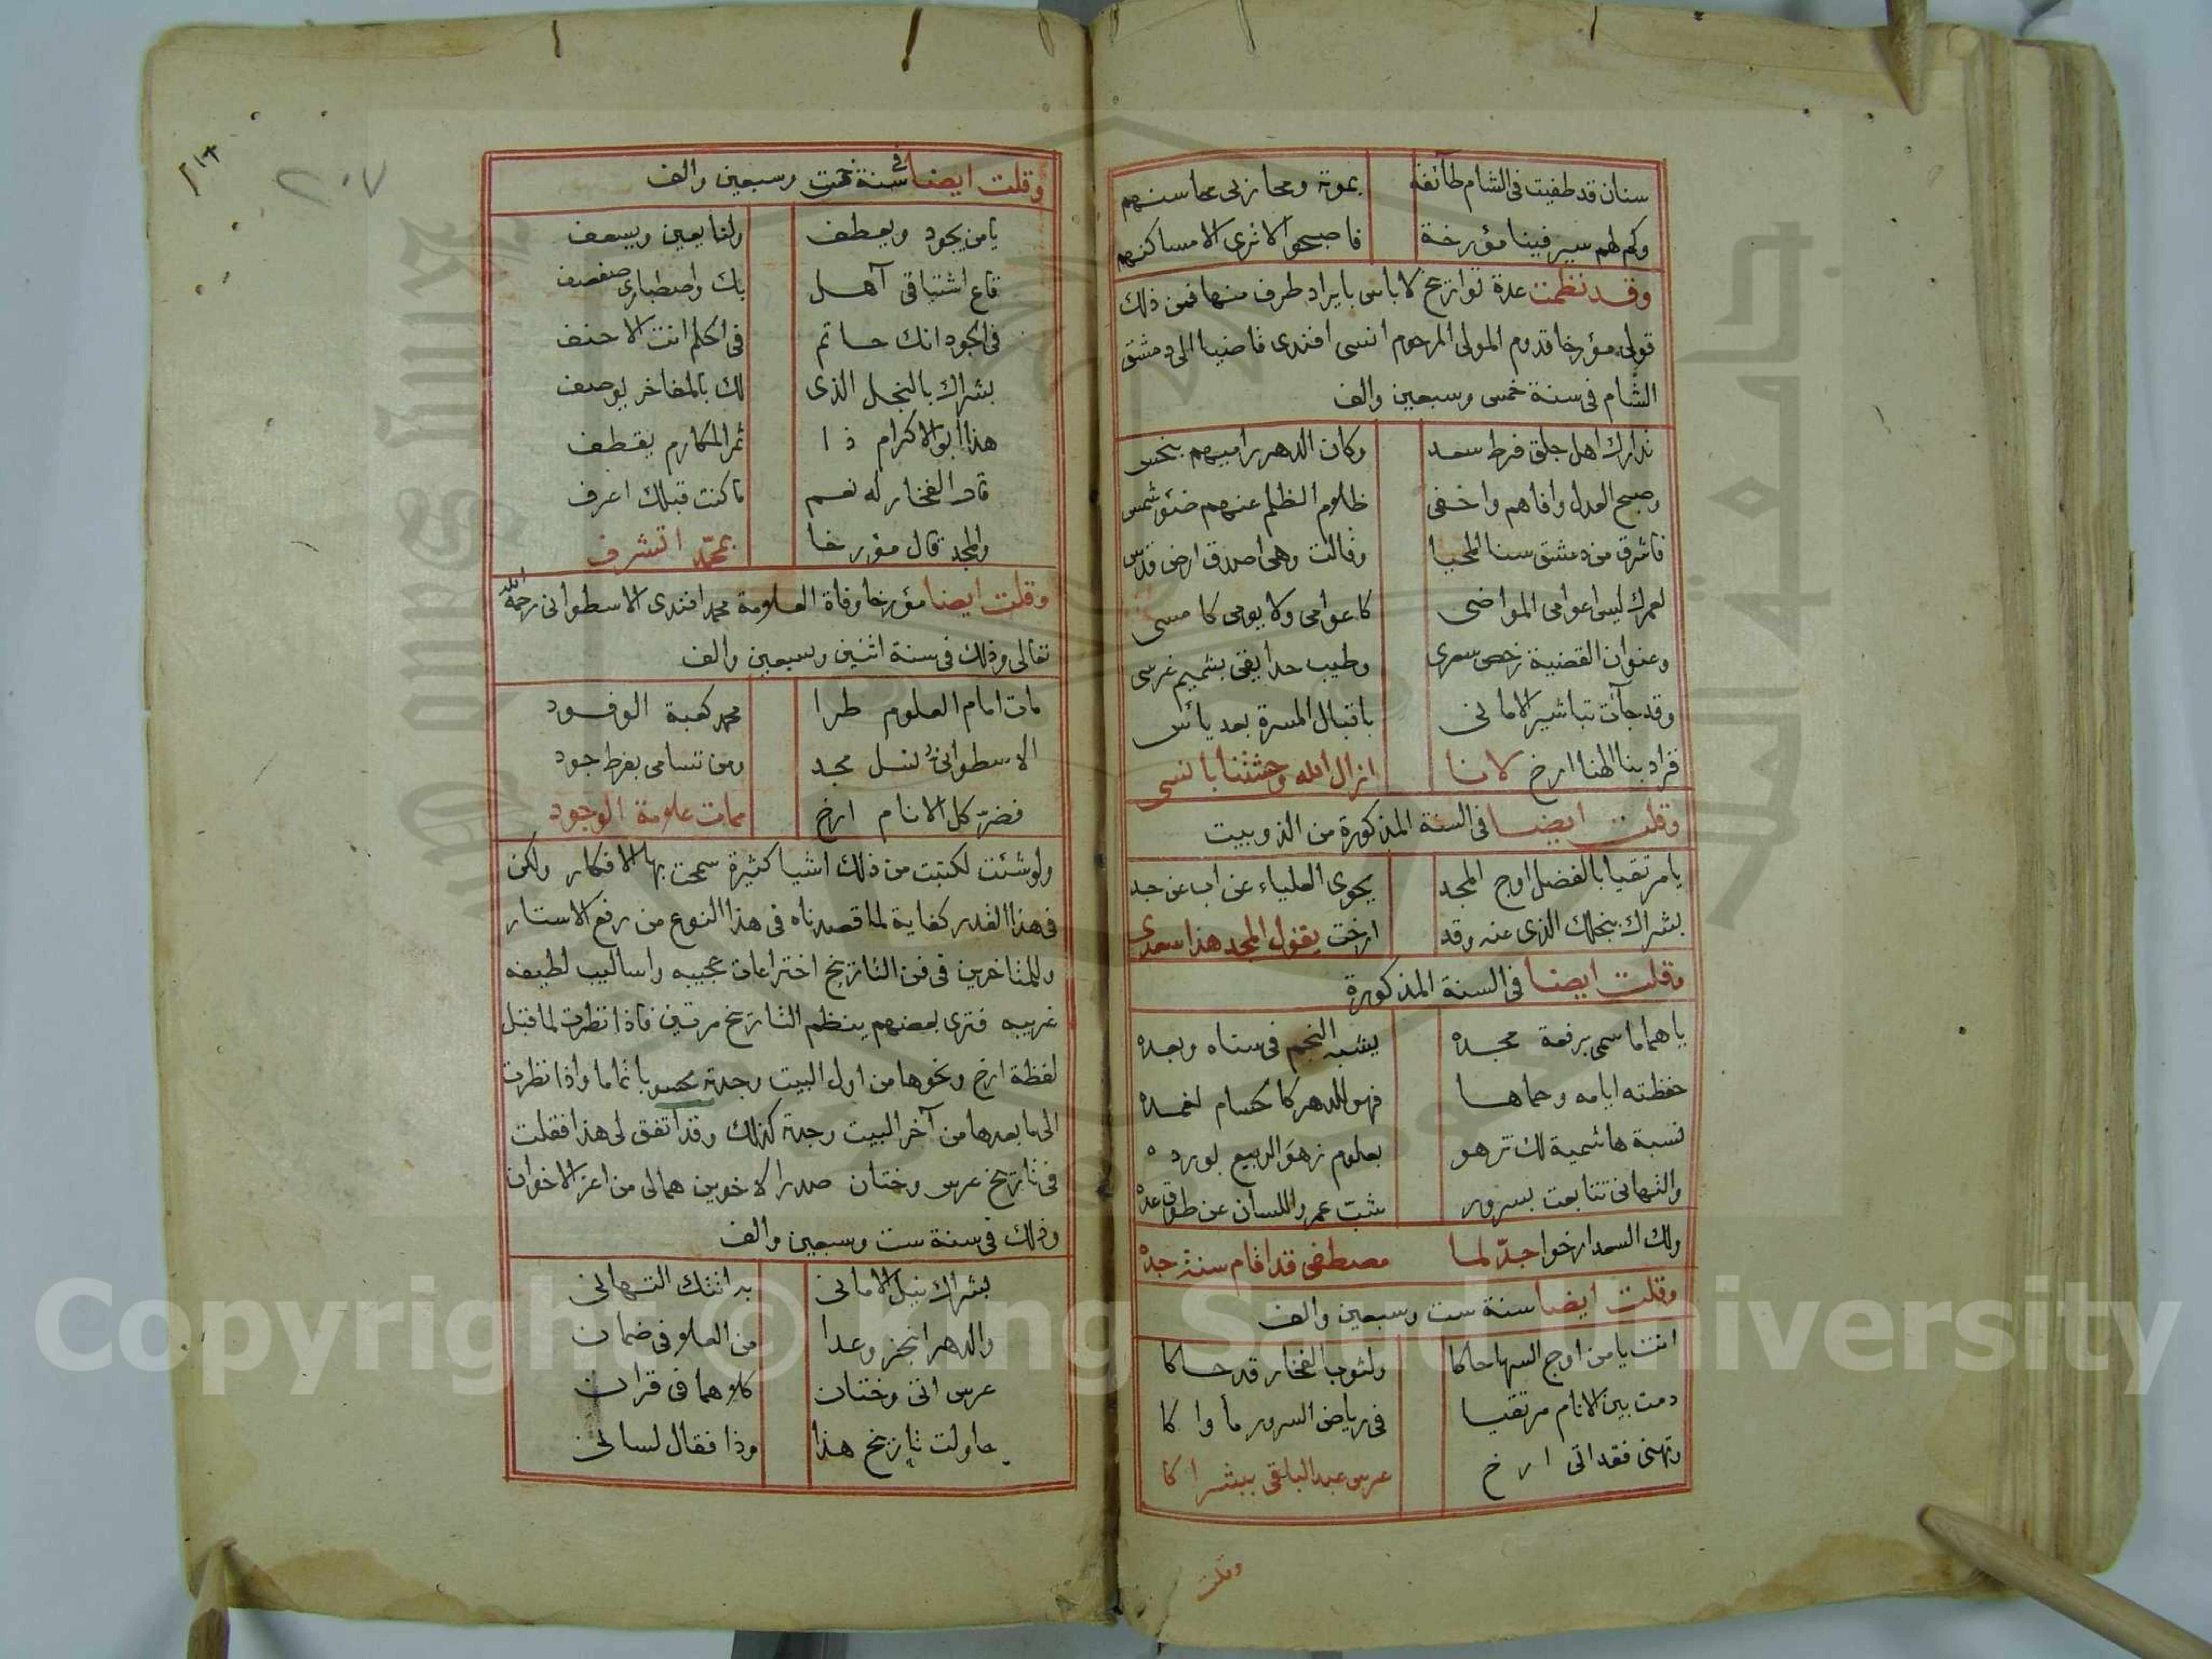 سنان قد طفيت في الشام طائفة بموته ومحا زيى محاسنهم
وكم لهم سير فينا مؤرخة فاصبحوا لا ترى الا مساكنهم
وقد نظمت عدة تواريخ لا باس بايراد طرف منها فمن ذلك
قولى مؤرخا قدوم المولى المرحوم انسى افندى قاضيا الى دمشق
الشام فى سنة خمس وسبعين والف
تدارك اهل جلق فرط سعد وكان الدهر راميهم بنحس
وصبح العدل وافاهم واخفى ظلام الظلم عنهم ضوء شمس
فاشرق من دمشق سنا المحيا وقالت وهى اصدق ارض قدس
لعمرك ليس اعوامى المواضى كاعوامى ولا يومى كامسى
وعنوان القضية رخص سعرى وطيب حدايقى بشميم غرسى
وقد جآت تباشير الامانى باقبال المسرة بعد يائس
فزاد بنا الهنا ارخ لانا ازال الله وحشتنا بانسى
وقلت ايضا فى السنة المذكورة من الذوبيت
يا مرتقيا بالفضل اوج المجد يحوى العلياء عن اب عن جد
بشراك بنجلك الذى عنه وقد ارخت يقول المجد هذا سعدى
وقلت ايضا فى السنة المذكورة
يا هماما سمى برفعة مجده يشبه النجم فى سناه وبعده
حفظته ايامه وحماها فهو للدهر كالحسام لغمده
نسبة هاشمية لك تزهو بعلوم زهو الربيع بورده
والتهانى تتابعت بسرور شبّ عمرو اللسان عن طوق عده
ولك السعد ارخوا جدّ لما مصطفى قد اقام سنة جده
وقلت ايضا سنة ست وسبعين والف
انت يا من اوج السها حاكا ولثوب الفخار قد حاكا
دمت بين الانام مرتقيا فى رياض السرور ماواكا
وتهنى فقد اتى ارخ عرس عبد الباقى ببشراكا
وقلت
٢٠٧
وقلت ايضا فى سنة ست وسبعين والف
يا من يجود ويعطف ولنا يعين ويسعف
قاع اشتياقى آهل بك واصطبارى صفصف
فى الجود انك حاتم فى الحلم انت الاحنف
بشراك بالنجل الذى لك بالمفاخر يوصف
هذا ابو الاكرام ذا ثمر المكارم يقطف
قال الفخار له نعم ما كنت قبلك اعرف
والمجد قال مؤرخا بمحمّد اتشرف
وقلت ايضا مؤرخا وفاة العلامة محمد افندى الاسطوانى رحمه الله
تعالى وذلك فى سنة اثنين وسبعين والف
مات امام العلوم طرا محمد كعبة الوفود
الاسطوانىُّ نسل مجد ومن تسامى بفرط جود
فضرّ كل الانام ارخ ممات علامة الوجود
ولو شئت لكتبت من ذلك اشيا كثيرة سمحت بها الافكار ولكن
فى هذا القدر كفاية لما قصدناه فى هذا النوع من رفع الاستار
وللمتاخرين فى فن التاريخ اختراعات عجيبه واساليب لطيفه
غريبه فترى بعضهم ينظم التاريخ مرتين فاذا نظرت لما قبل
لفظة ارخ ونحوها من اول البيت وجدته محسوبا تماما واذا نظرت
الى ما بعدها من آخر البيت وجدته كذلك وقد اتفق لى هذا فقلت
فى تاريخ عرس وختان صدرا لاخوين هما لى من اعز الاخوان
وذلك فى سنة ست وسبعين والف
بشراك نيل الامانى به اتتك التهانى
والدهر انجز وعدا من العلو فى ضمان
عرس اتى وختان كلاهما فى قران
حاولت تاريخ هذا وذا فقال لسانى
Copyright © King Saud University